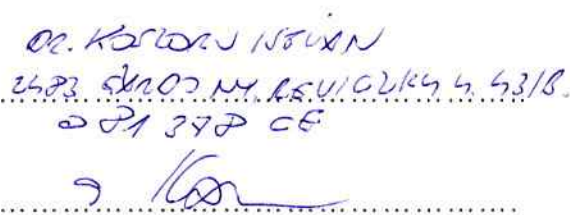 DR. KOSZORU ISTVÁN
2483 GÁRDONY, REVICZKY U. 43/B.
081378 CE